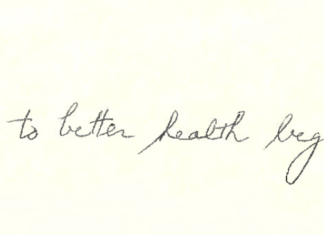 to better health beg